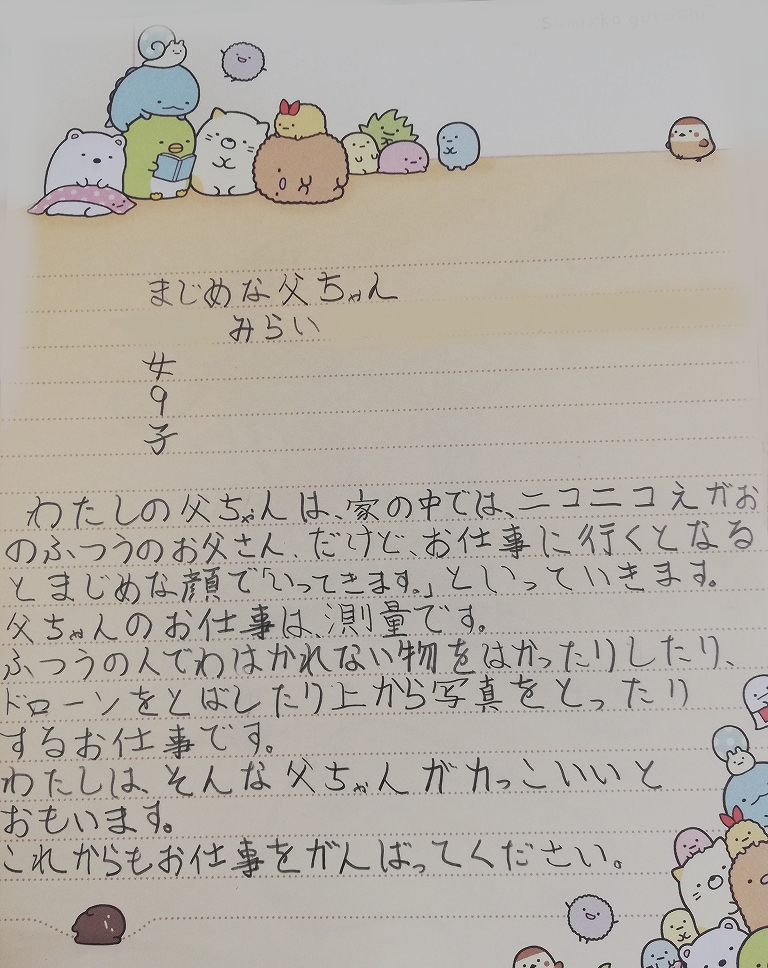 Sumikko gurashi
まじめな父ちゃん
みらい
女
9
子
わたしの父ちゃんは、家の中では、ニコニコえがお
のふつうのお父さん、だけど、お仕事に行くとなる
とまじめな顔で「いってきます。」といっていきます。
父ちゃんのお仕事は、測量です。
ふつうの人でわはかれない物をはかったりしたり、
ドローンをとばしたり上から写真をとったり
するお仕事です。
わたしは、そんな父ちゃんがカっこいいと
おもいます。
これからもお仕事をがんばってください。